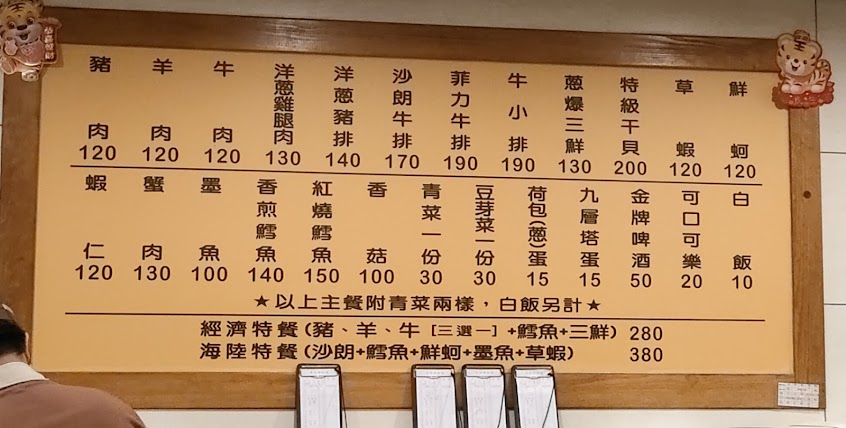 豬肉 120
羊肉 120
牛肉 120
洋蔥雞腿肉 130
洋蔥豬排 140
沙朗牛排 170
菲力牛排 190
牛小排 190
蔥爆三鮮 130
特級干貝 200
草蝦 120
鮮蚵 120
蝦仁 120
蟹肉 130
墨魚 100
香煎鱈魚 140
紅燒鱈魚 150
香菇 100
青菜一份 30
豆芽菜一份 30
荷包(蔥)蛋 15
九層塔蛋 15
金牌啤酒 50
可口可樂 20
白飯 10
★以上主餐附青菜兩樣，白飯另計★
經濟特餐(豬、羊、牛［三選一］+鱈魚+三鮮) 280
海陸特餐(沙朗+鱈魚+鮮蚵+墨魚+草蝦) 380